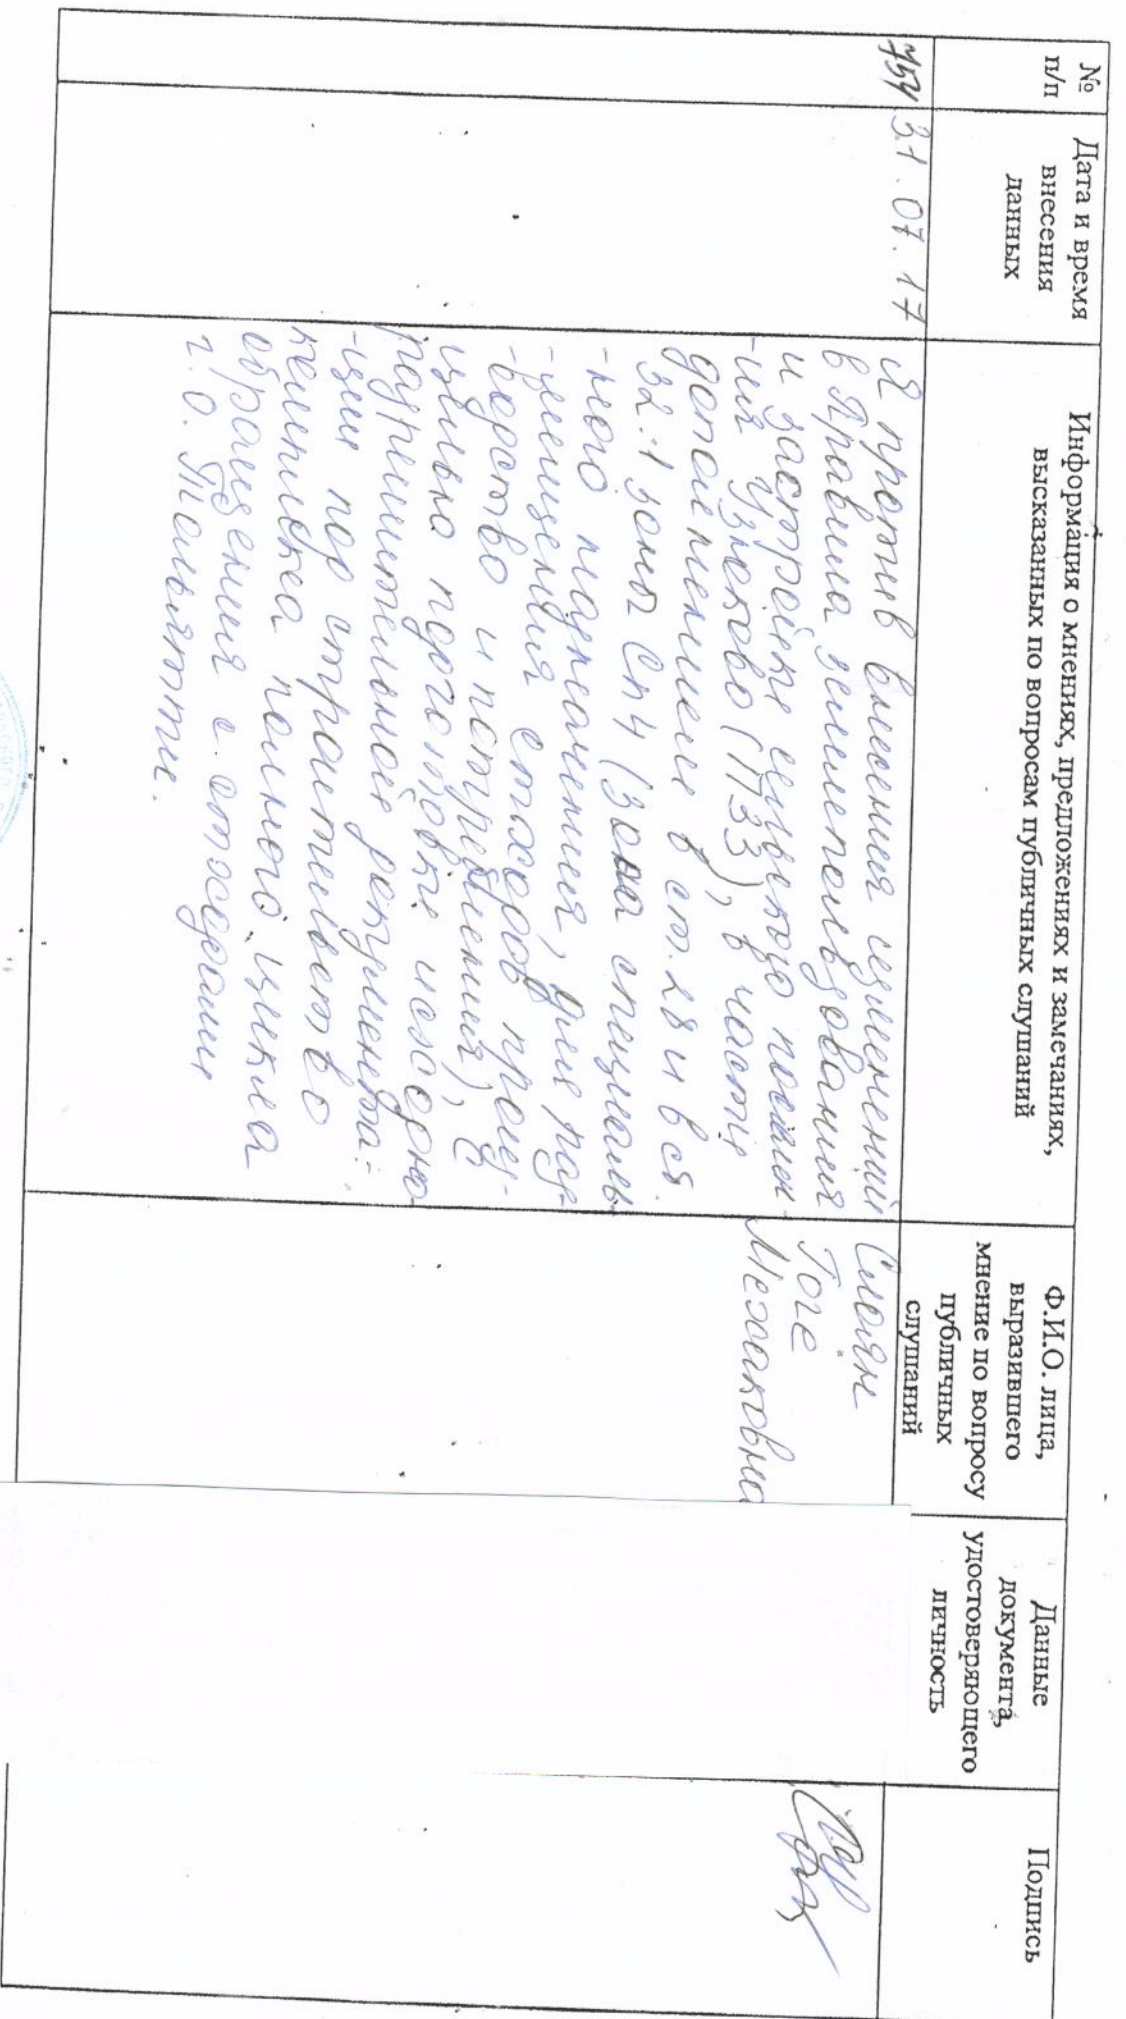 №
п/п
Дата и время
внесения
данных
Информация о мнениях, предложениях и замечаниях,
высказанных по вопросам публичных слушаний
Ф.И.О. лица,
выразившего
мнение по вопросу
публичных
слушаний
Данные
документа,
удостоверяющего
личность
Подпись
754
31.07.17
Я против внесения изменений
в Правила землепользования
и застройки сельского поселен-
-ия Узюково (ПЗЗ), в части
дополнениями в ст. 28 и в ст.
32.1 зоны Сп4 (Зона специаль-
-ного назначения, для раз-
-мещения отходов произ-
-водство и потребления), с
целью подготовки исходно
разрешительной документа-
-ции под строительство
комплекса полного цикла
обращения с отходами
г.о. Тольятти.
Слоян
Тоге
Межаковна